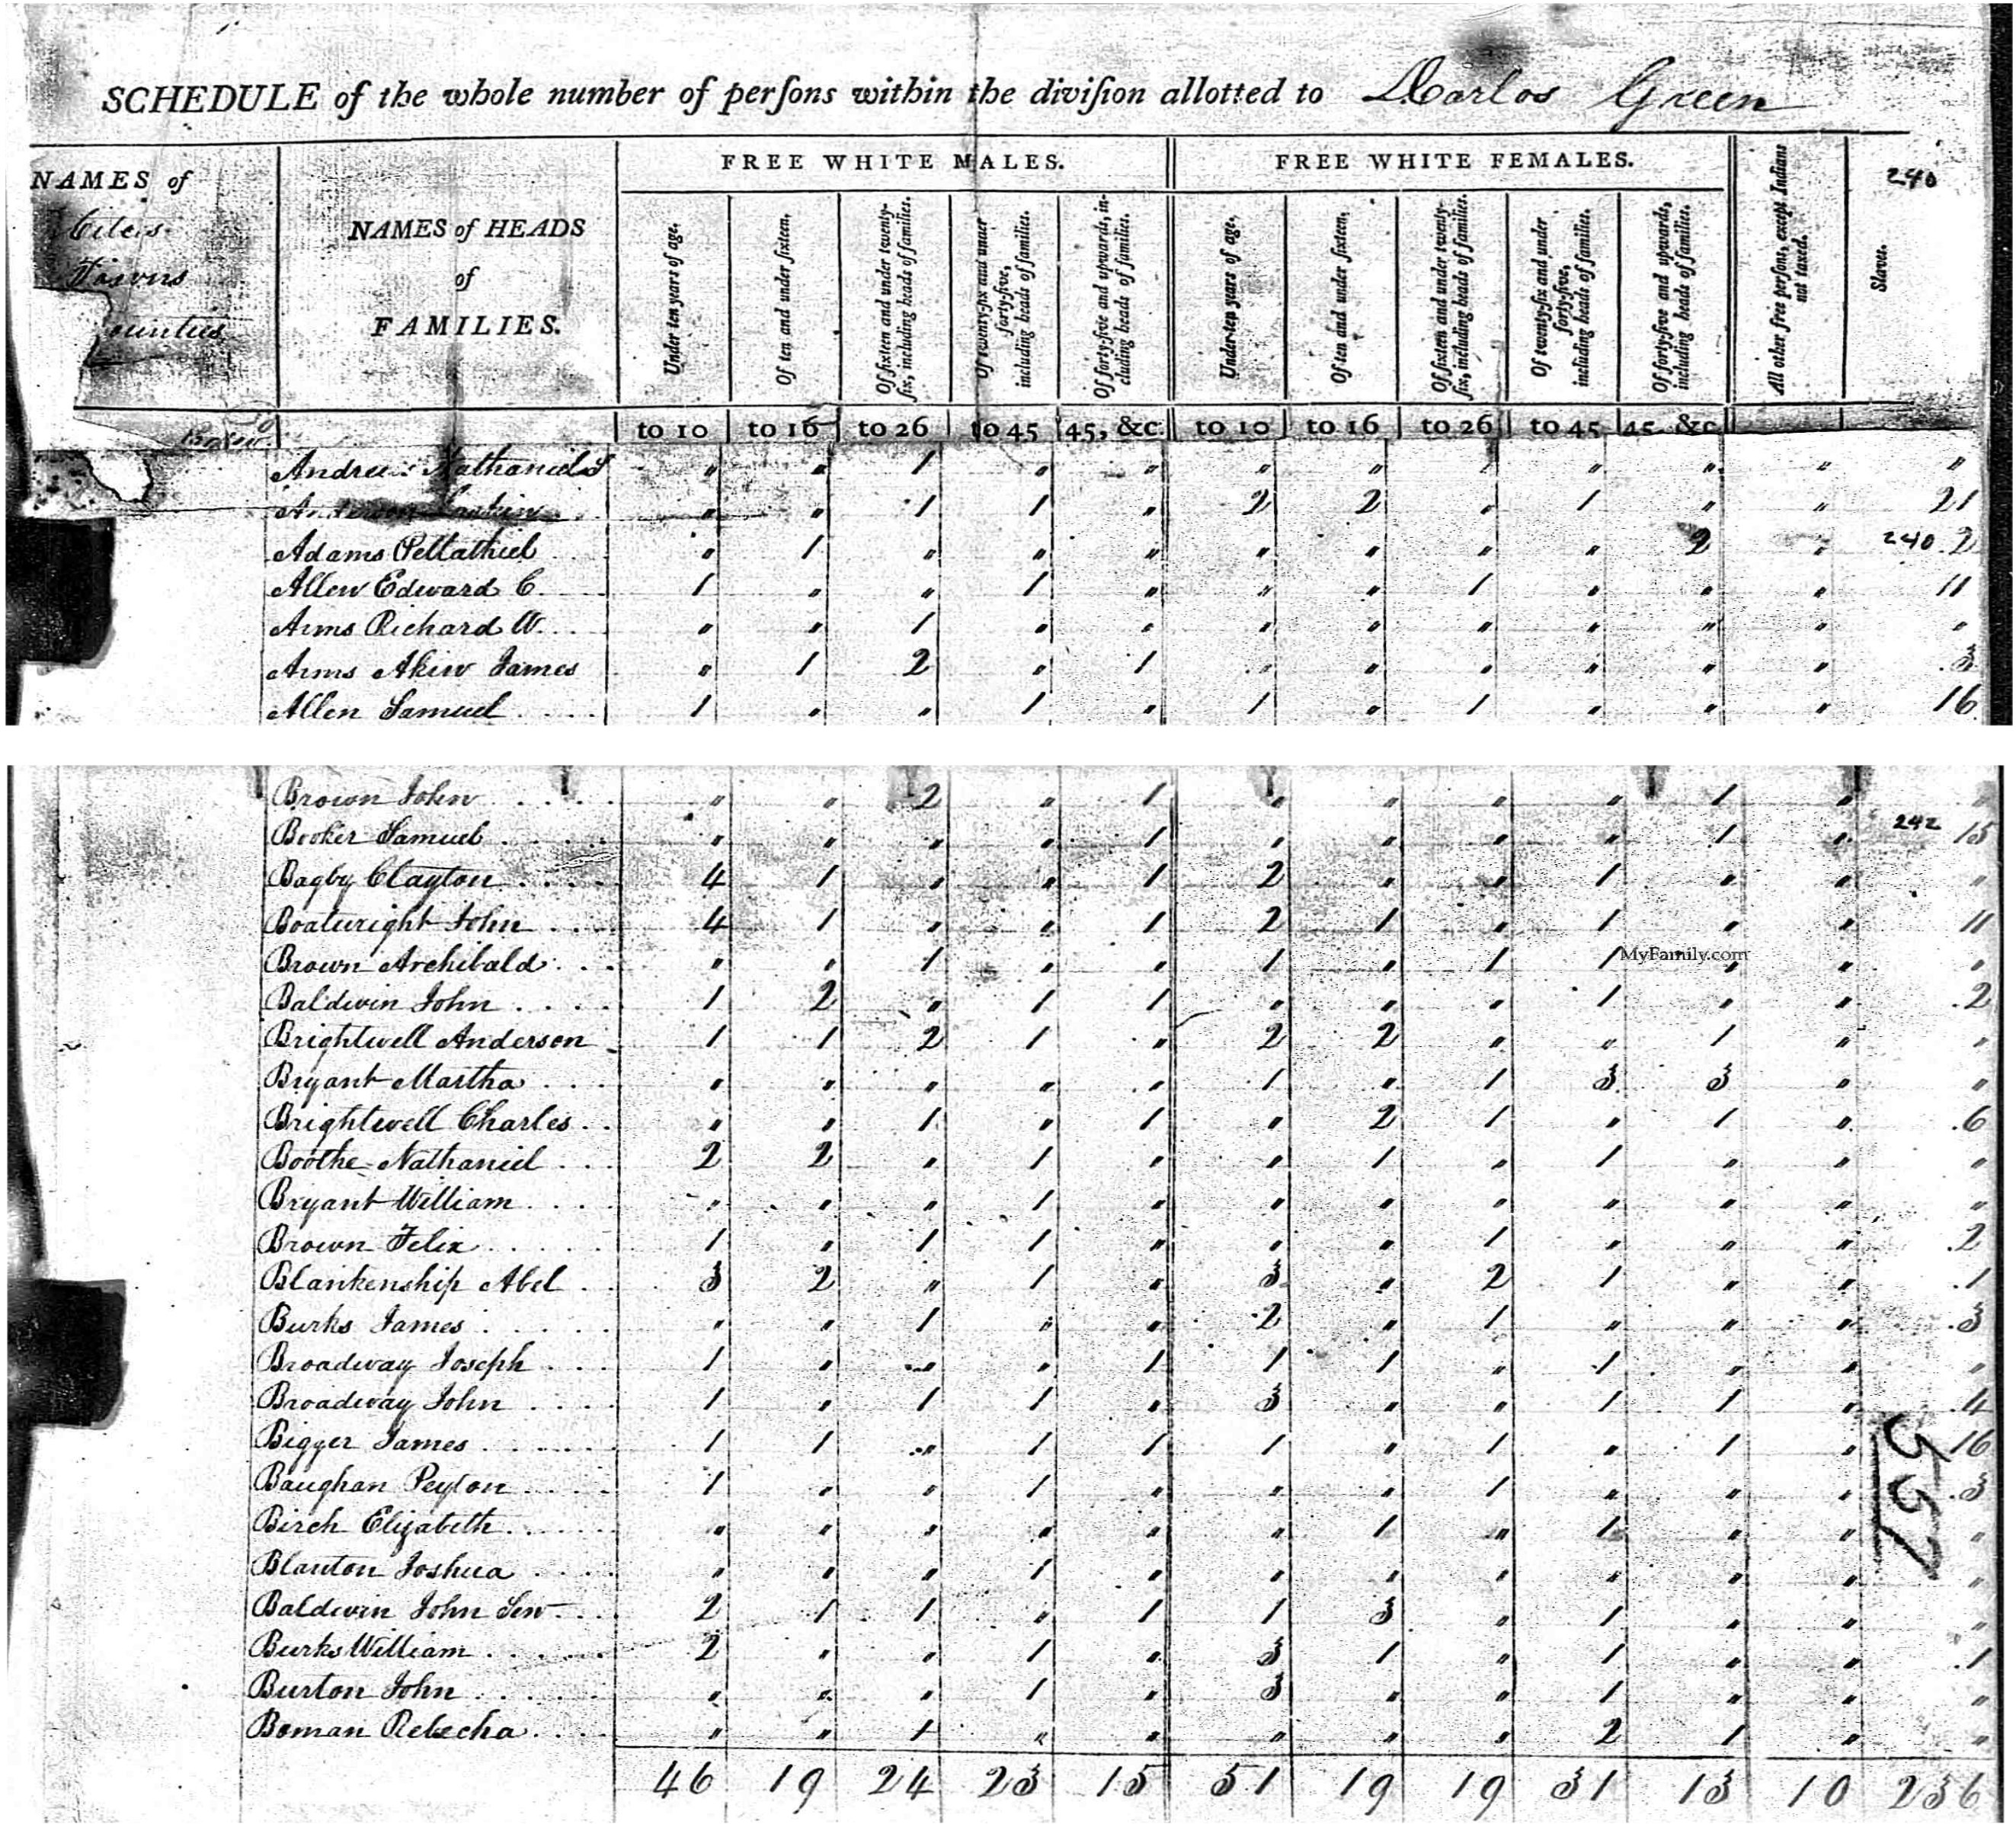 SCHEDULE of the whole number of perſons within the diviſion allotted to Carlos Green
NAMES of
NAMES of HEADS
of
FAMILIES.
FREE WHITE MALES.
FREE WHITE FEMALES.
Towns
ounties
Under ten years of age,
Of ten and under ſixteen,
Of ſixteen and under twenty-ſix, including heads of families.
Of twenty-ſix and under forty-five, including heads of families.
Of forty-five and upwards, including heads of families.
Under ten years of age,
Of ten and under ſixteen,
Of ſixteen and under twenty-ſix, including heads of families.
Of twenty-ſix and under forty-five, including heads of families.
Of forty-five and upwards, including heads of families.
All other free perſons, except Indians not taxed.
Slaves.
240
to 10 to 16 to 26 to 45 45, &c. to 10 to 16 to 26 to 45 45, &c
Nathaniel " " 1 " " " " " " " " "
" " 1 1 " 2 2 " 1 " " 21
Adams Pellathiel " 1 " " " " " " " 2 " 240 2
Allen Edward C. 1 " " 1 " " " 1 " " " 11
Arms Richard W. " " 1 " " " " " " " " "
Arms Akin James " 1 2 " 1 " " " " " " 3
Allen Samuel 1 " " 1 " 1 " 1 " " " 16
Brown John " " 2 " 1 " " " " 1 " "
Booker Samuel " " " " 1 " " " " 1 " 242 15
Bagby Clayton 4 1 " " 1 2 " " 1 " " "
Boatwright John 4 1 " " 1 2 1 " 1 " " 11
Brown Archibald " " 1 " " 1 " 1 1 " " "
MyFamily.com
Baldwin John 1 2 " 1 1 " " " 1 " " 2
Brightwell Anderson 1 1 2 1 " 2 2 " " 1 " "
Bryant Martha " " " " " 1 " 1 3 3 " "
Brightwell Charles " " 1 " 1 " 2 1 " 1 " 6
Boothe Nathaniel 2 2 " 1 " " 1 " 1 " " "
Bryant William " " " 1 " " " " " " " "
Brown Felix 1 " 1 1 " " " 1 " " " 2
Blankenship Abel 3 2 " 1 " 3 " 2 1 " " 1
Burks James " " 1 " " 2 " 1 " " " 3
Broadway Joseph 1 " " " 1 1 1 " 1 " " "
Broadway John 1 " 1 1 " 3 " " 1 1 " 4
Bigger James 1 1 " 1 1 1 " 1 " 1 " 16
Baughan Peyton 1 " " 1 " " " 1 " " " 3
Birch Elizabeth " " " " " " 1 " 1 " " "
Blanton Joshua " " " 1 " " " " " " " "
Baldwin John Sen 2 1 1 " 1 1 3 " 1 " " "
Burks William 2 " " 1 " 3 1 " 1 " " 1
Burton John " " " 1 " 3 " " 1 " " "
Boman Rebecha " " 1 " " " " " 2 1 " "
46 19 24 23 15 51 19 19 31 13 10 236